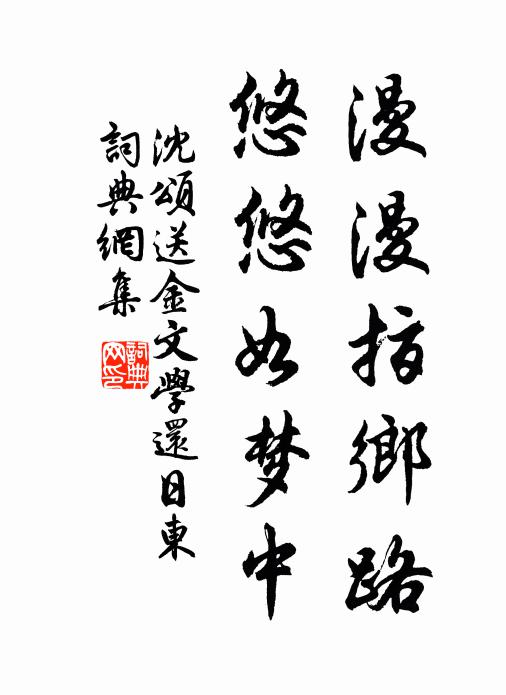 漫漫指鄉路
悠悠如梦中
沈頌送金文學還日東
詞典網集
詞典網印